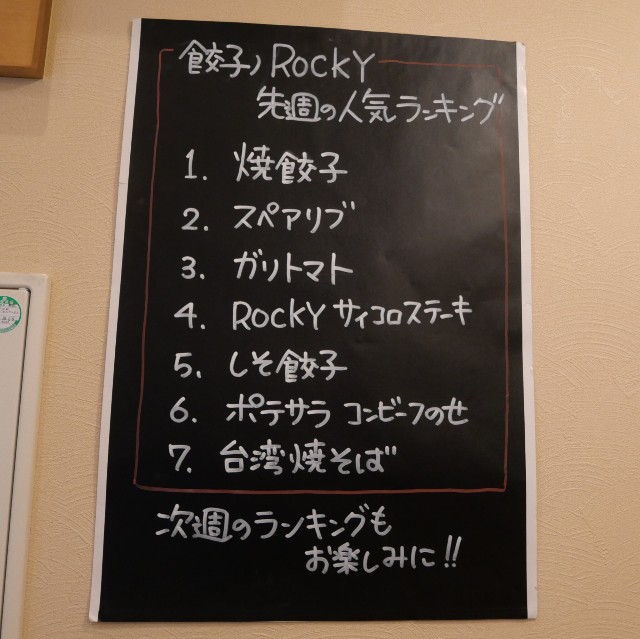 餃子ノRocky
先週の人気ランキング
1. 焼餃子
2. スペアリブ
3. ガリトマト
4. Rocky サイコロステーキ
5. しそ餃子
6. ポテサラ コンビーフのせ
7. 台湾焼そば
次週のランキングも
お楽しみに!!